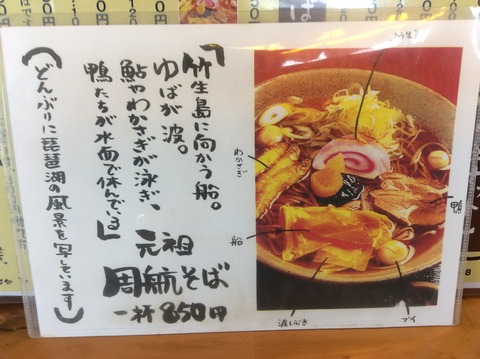 「竹生島に向かう船。
ゆばが波。
鮎やわかさぎが泳ぎ、
鴨たちが水面で休んでいる」
元祖
周航そば
一杯 850円
(どんぶりに琵琶湖の風景を写しています)
わかさぎ
鴨
船
波しぶき
ブイ